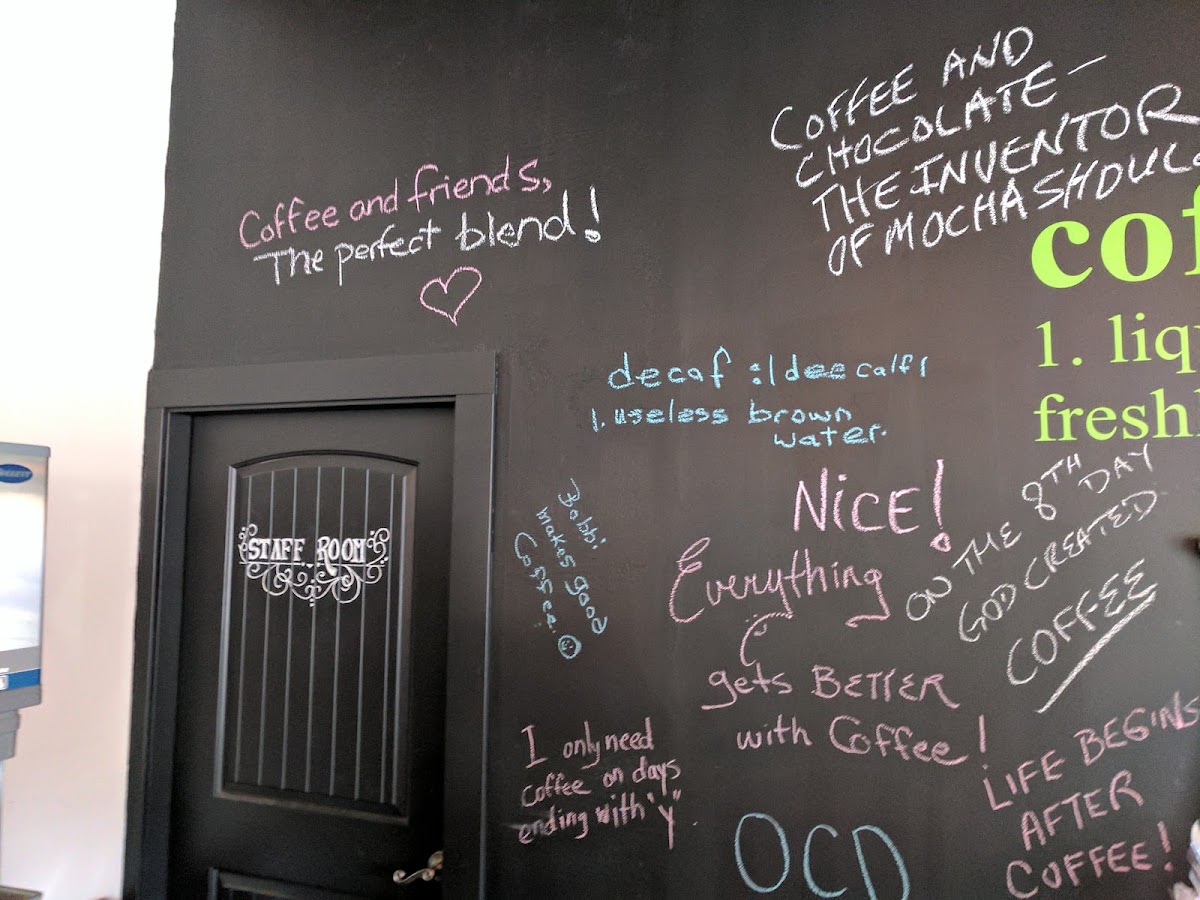 COFFEE AND
CHOCOLATE -
THE INVENTOR
OF MOCHA SHDULD
Coffee and friends,
The perfect blend!
cof
1. liq
fresh
decaf :| dee calf |
1. useless brown
water.
STAFF ROOM
Bobbi
makes good
Coffee.
NiCE!
Everything
gets BETTER
with Coffee!
ON THE 8TH DAY
GOD CREATED
COFFEE
I only need
coffee on days
ending with "y"
LIFE BEGINS
AFTER
COFFEE!
OCD